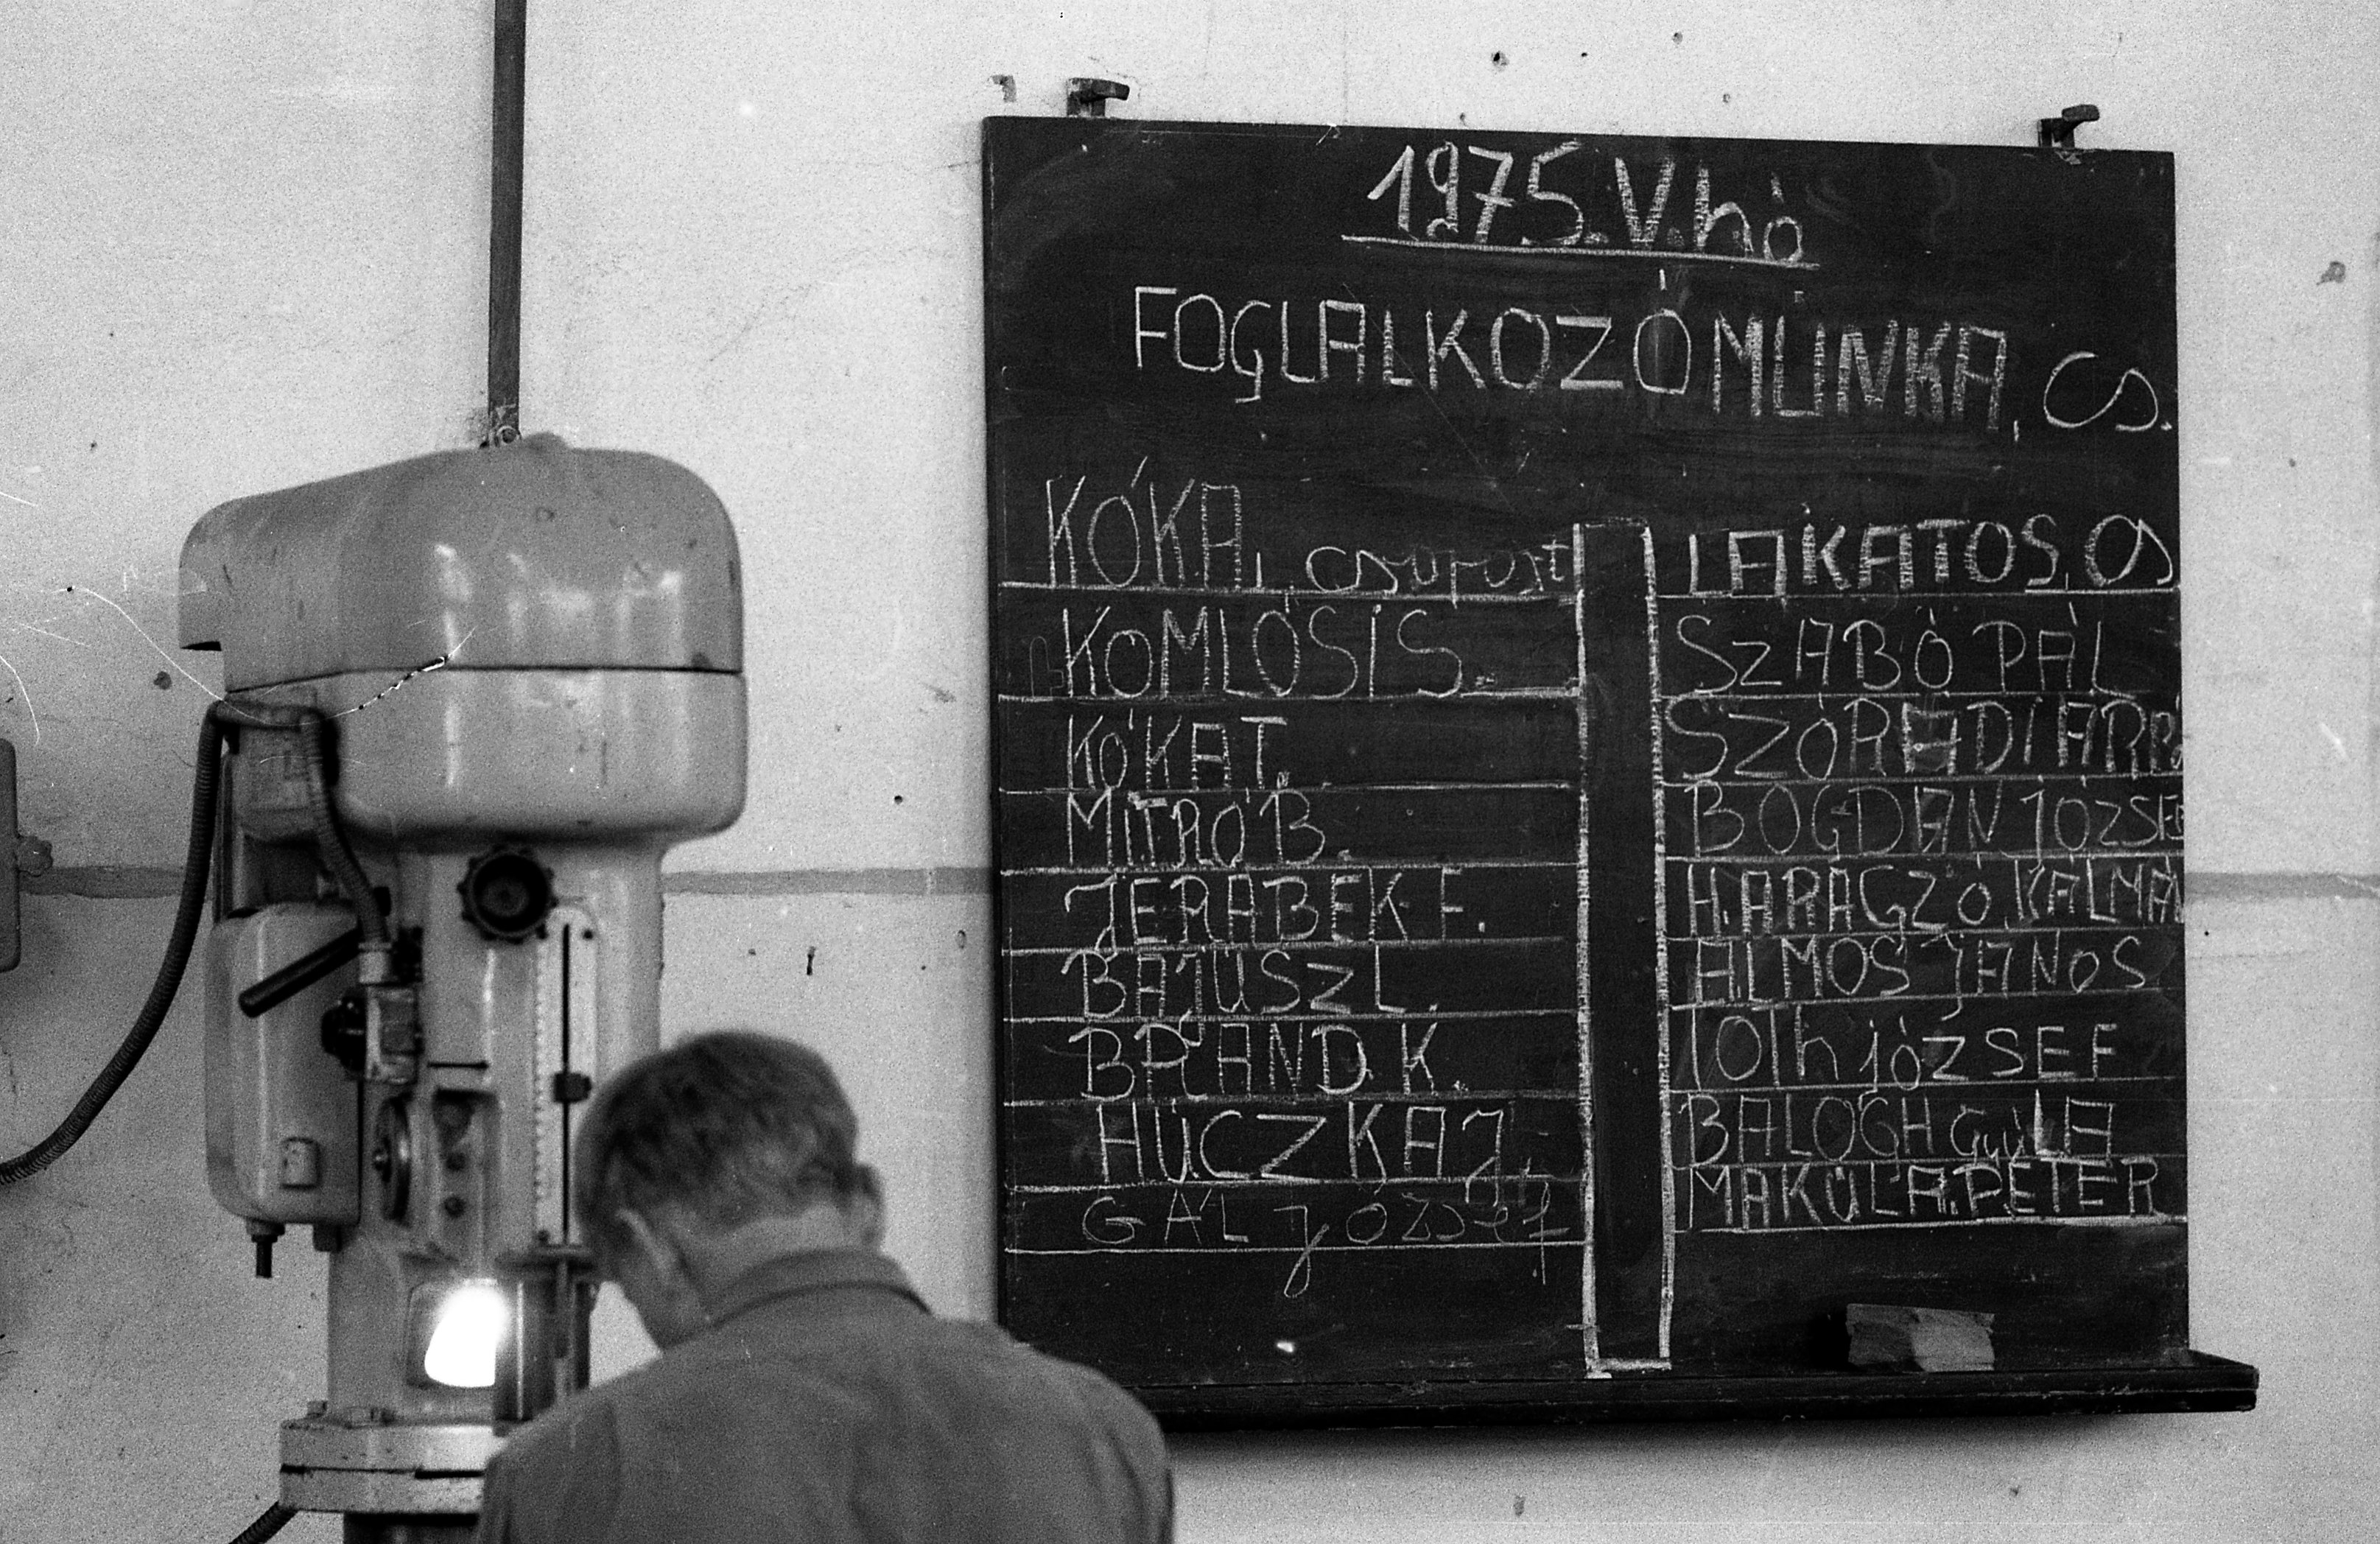 1975. V. hó
FOGLALKOZÓ MUNKA, CS.
KÓKA, csoport
KOMLÓSI S.
KÓKA T.
MITRÓ B.
JERABEK F.
BAJUSZ L.
BRAND K.
HUCZKA J.
GÁL József
LAKATOS, CS
SZABÓ PÁL
SZÓRÁDI ÁRPÁ
BOGDÁN JÓZSEF
HARAGZÓ KÁLMÁN
ÁLMOS JÁNOS
Tóth józSEF
BALOGH GyuLA
MAKULA PÉTER